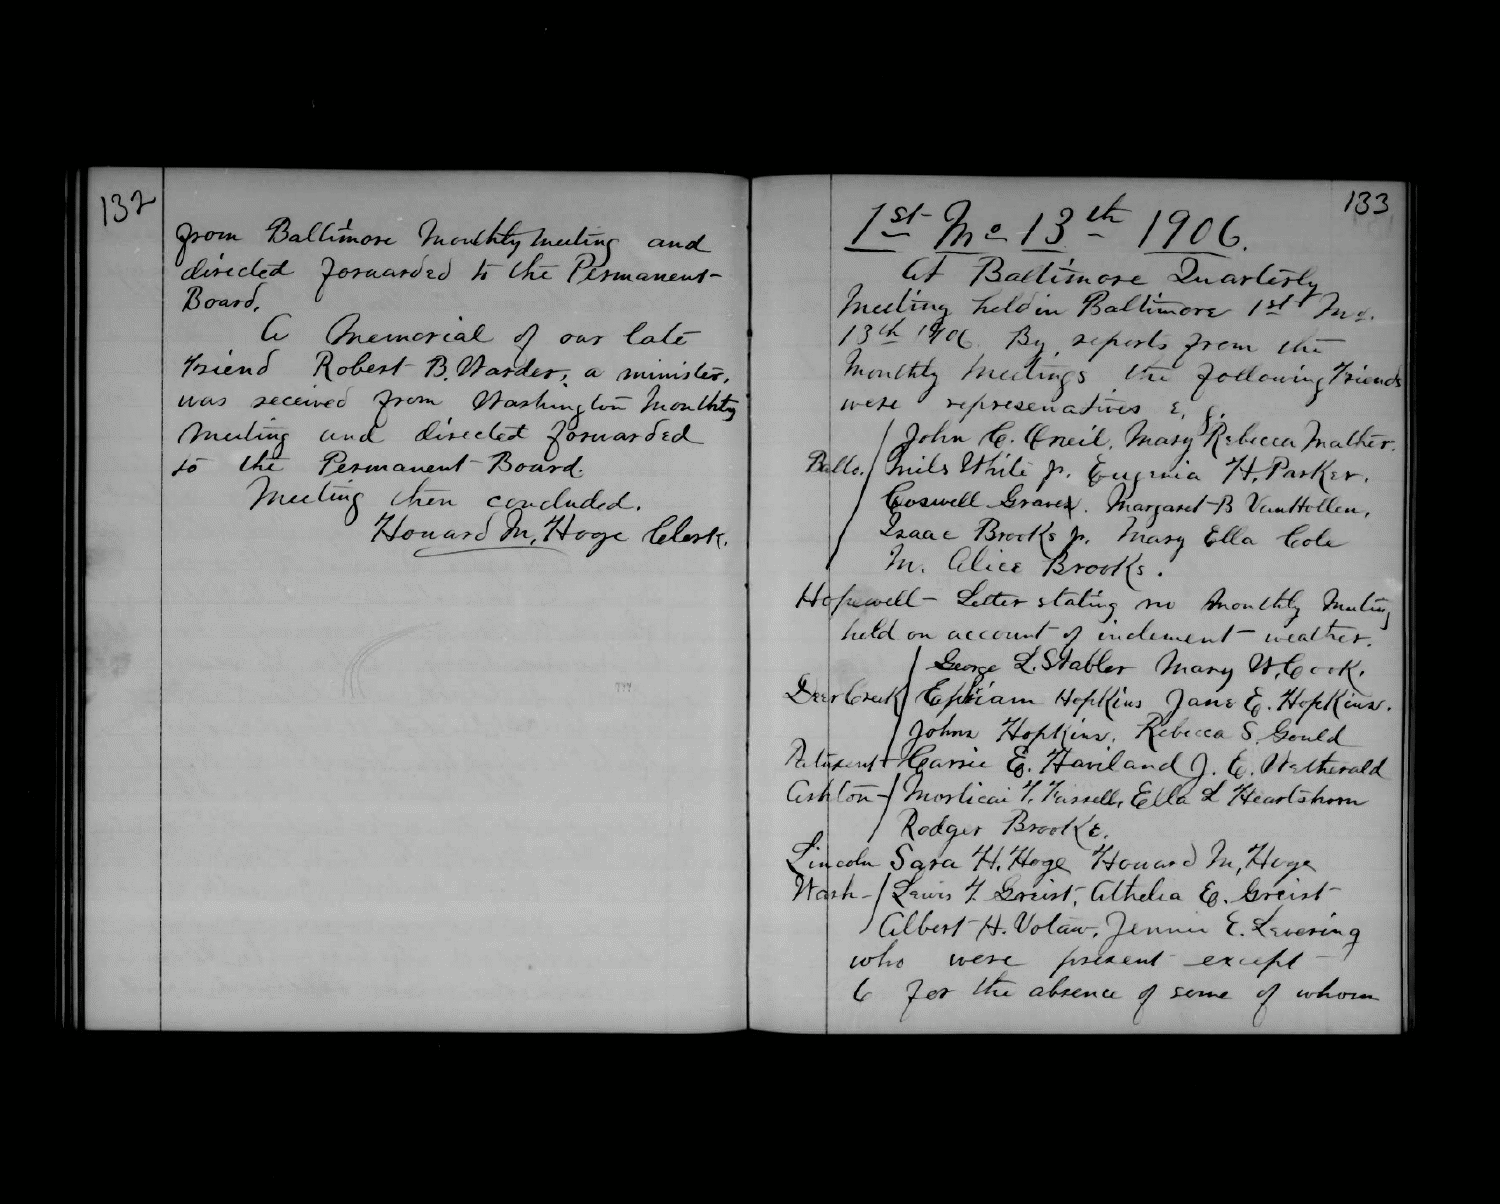 132
from Baltimore Monthly Meeting and
directed forwarded to the Permanent
Board.
A Memorial of our late
Friend Robert B. Warder, a minister,
was received from Washington Monthly
Meeting and directed forwarded
to the Permanent Board.
Meeting then concluded.
Howard M. Hoge Clerk.
133
1st Mo 13th 1906.
At Baltimore Quarterly
Meeting held in Baltimore 1st Mo.
13th 1906. By reports from the
Monthly Meetings the following Friends
were represenatives
John C. Oneil, Mary Rebecca Mather.
Balto. Miles White jr. Eugenia H. Parker.
Coswell Graves. Margaret B VanHollen,
Isaac Brooks jr. Mary Ella Cole
M. Alice Brooks.
Hopewell - Letter stating no Monthly Meeting
held on account of inclement weather.
George L. Stabler Mary W. Cook.
Deer Creek Ephriam Hopkins Jane E. Hopkins.
Johns Hopkins. Rebecca S. Gould
Patuxent Carrie E. Haviland J. E. Wetherald
Ashton - Mordicai T. Fussell, Ella L Heartshorn
Rodger Brooke.
Lincoln Sara H. Hoge Howard M. Hoge
Wash - Lewis T. Greist, Athelia E. Greist
Albert H. Votaw, Jennie E. Levering
who were present except
6 for the absence of some of whom